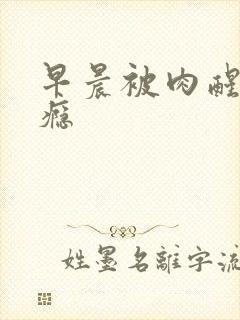 早晨被肉醒
瘾
姓墨名離字流